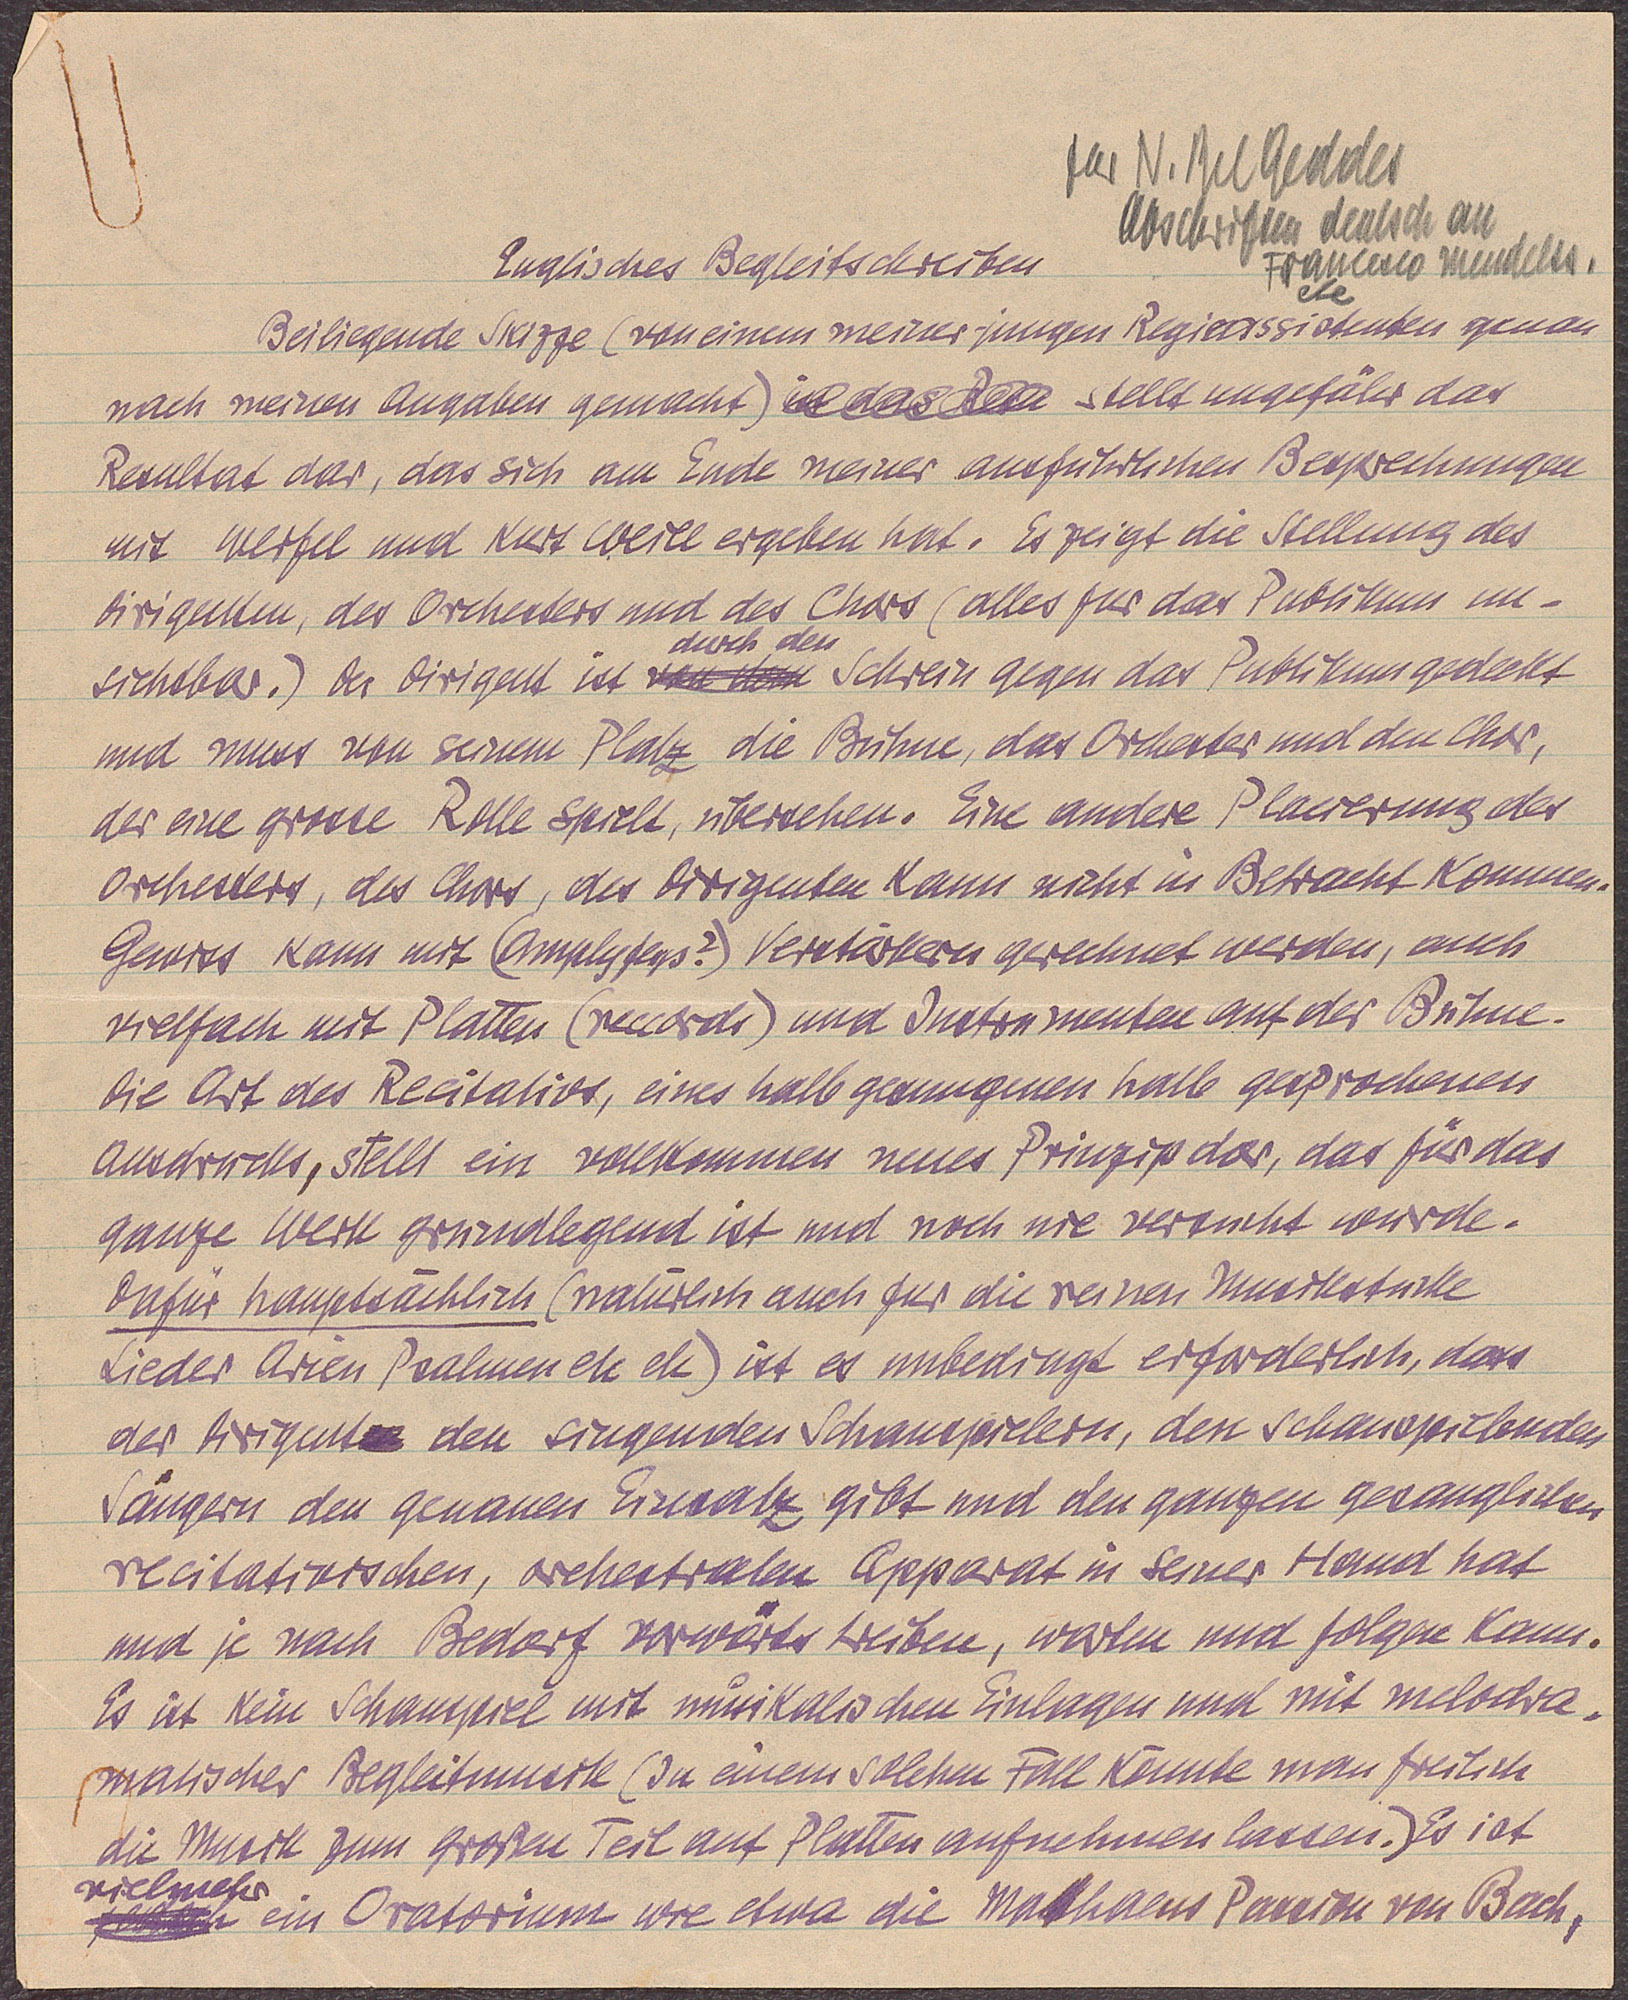 für N. Bel Geddes
Abschriften deutsch an
Francesco Mendelss.
etc
Englisches Begleitschreiben
Beiliegende Skizze (von einem meiner jungen Regieassistenten genau
nach meinen Angaben gemacht) stellt ungefähr das
Resultat dar, das sich am Ende meiner ausführlichen Besprechungen
mit Werfel und Kurt Weill ergeben hat. Es zeigt die Stellung des
Dirigenten, des Orchesters und des Chors (alles für das Publikum un-
sichtbar.) Der Dirigent ist durch den Schrein gegen das Publikum gedeckt
und muss von seinem Platz die Bühne, das Orchester und den Chor,
der eine grosse Rolle spielt, übersehen. Eine andere Placierung des
Orchesters, des Chors, des Dirigenten kann nicht in Betracht kommen.
Gewiss kann mit (Amplyfeys?) Verstärkern gerechnet werden, auch
vielfach mit Platten (records) und Instrumenten auf der Bühne.
Die Art des Recitativs, eines halb gesungenen halb gesprochenen
Ausdrucks, stellt ein vollkommen neues Prinzip dar, das für das
ganze Werk grundlegend ist und noch nie versucht wurde.
Dafür hauptsächlich (natürlich auch für die reinen Musikstücke
Lieder Arien Psalmen etc etc) ist es unbedingt erforderlich, dass
der Dirigent den singenden Schauspielern, den schauspielenden
Sängern den genauen Einsatz gibt und den ganzen gesanglichen
recitativischen, orchestralen Apparat in seiner Hand hat
und je nach Bedarf vorwärts treiben, warten und folgen kann.
Es ist kein Schauspiel mit musikalischen Einlagen und mit melodra-
matischer Begleitmusik (In einem solchen Fall könnte man freilich
die Musik zum großen Teil auf Platten aufnehmen lassen.) Es ist
vielmehr ein Oratorium wie etwa die Matthaeus Passion von Bach,